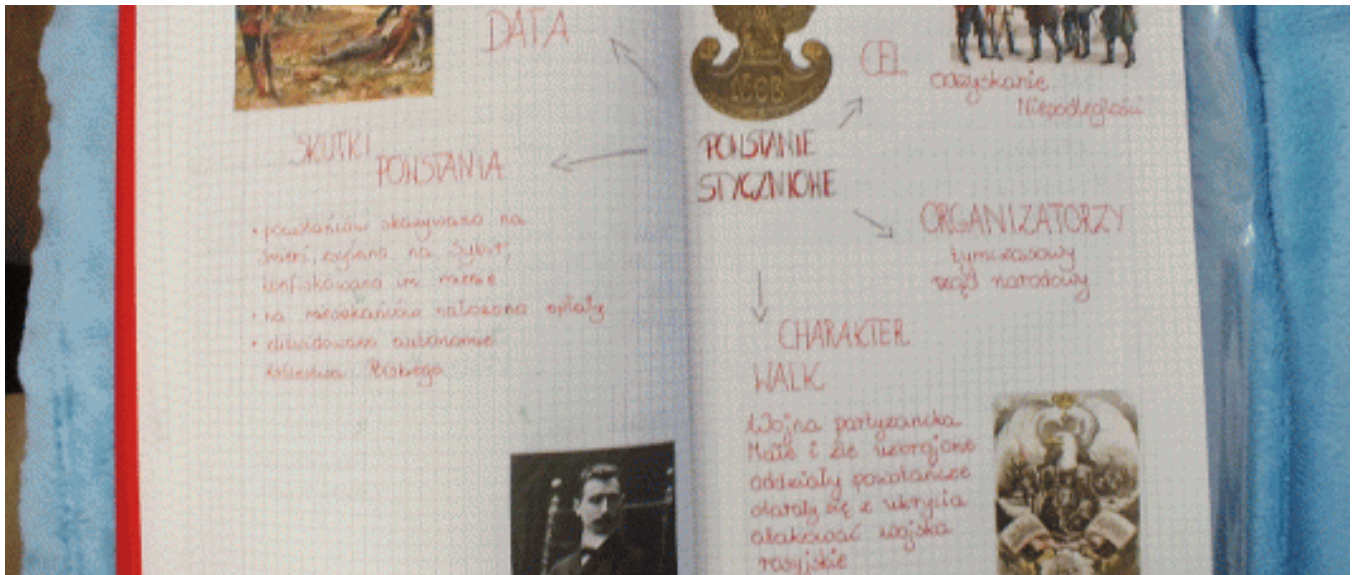 DATA
SKUTKI
POWSTANIA
• powstańców skazywano na
śmierć, zsyłano na Sybir,
konfiskowano im mienie
• na mieszkańców nałożono opłaty
• zlikwidowano autonomię
Królestwa Polskiego
1863
POWSTANIE
STYCZNIOWE
CEL
odzyskanie
Niepodległości
ORGANIZATORZY
tymczasowy
rząd narodowy
CHARAKTER
WALK
Wojna partyzancka
Małe i źle uzbrojone
oddziały powstańcze
starały się z ukrycia
atakować wojska
rosyjskie